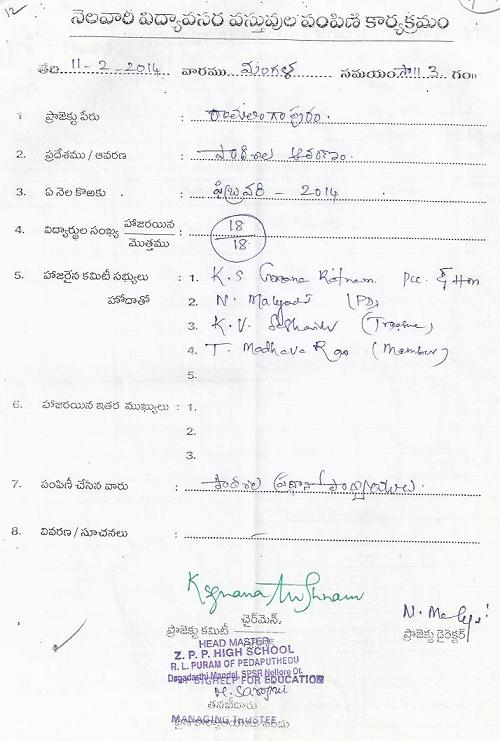 12
నెలవారీ విద్యావసర వస్తువుల పంపిణీ కార్యక్రమం
తేది 11-2-2014 వారము మంగళ సమయం సా॥ 3. గం॥
1. ప్రాజెక్టు పేరు : రామలింగాపురం.
2. ప్రదేశము / ఆవరణ : పాఠశాల ఆవరణం.
3. ఏ నెల కొఱకు : ఫిబ్రవరి - 2014
4. విద్యార్థుల సంఖ్య హాజరయిన / మొత్తము : 18 / 18
5. హాజరైన కమిటీ సభ్యులు : 1. K.S Ratnam Pcc. & Hm
హోదాతో 2. N. (PD)
3. K.V.
4. T. Madhava Rao (Member)
5.
6. హాజరయిన ఇతర ముఖ్యులు : 1.
2.
3.
7. పంపిణీ చేసిన వారు : పాఠశాల ప్రధాన
8. వివరణ / సూచనలు :
ఛైర్‌మెన్,
ప్రాజెక్టు కమిటీ
ప్రాజెక్టు డైరెక్టర్
HEAD MASTER
Z. P. P. HIGH SCHOOL
R. L. PURAM OF PEDAPUTHEDU
Dagadarthi Mandal, SPSR Nellore
BIGHELP FOR EDUCATION
తనఖీదారు
MANAGING TRUSTEE